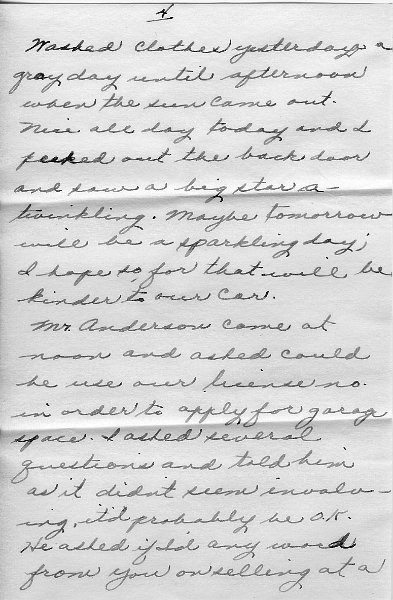 4
Washed clothes yesterday, a
gray day until afternoon
when the sun came out.
Nice all day today and I
peeked out the back door
and saw a big star a-
twinkling. Maybe tomorrow
will be a sparkling day;
I hope so for that will be
kinder to our car.
Mr. Anderson came at
noon and asked could
he use our license no.
in order to apply for garag
space. I asked several
questions and told him
as it didn't seem involv-
ing, it'd probably be O.K.
He asked if I'd any word
from you on selling at a